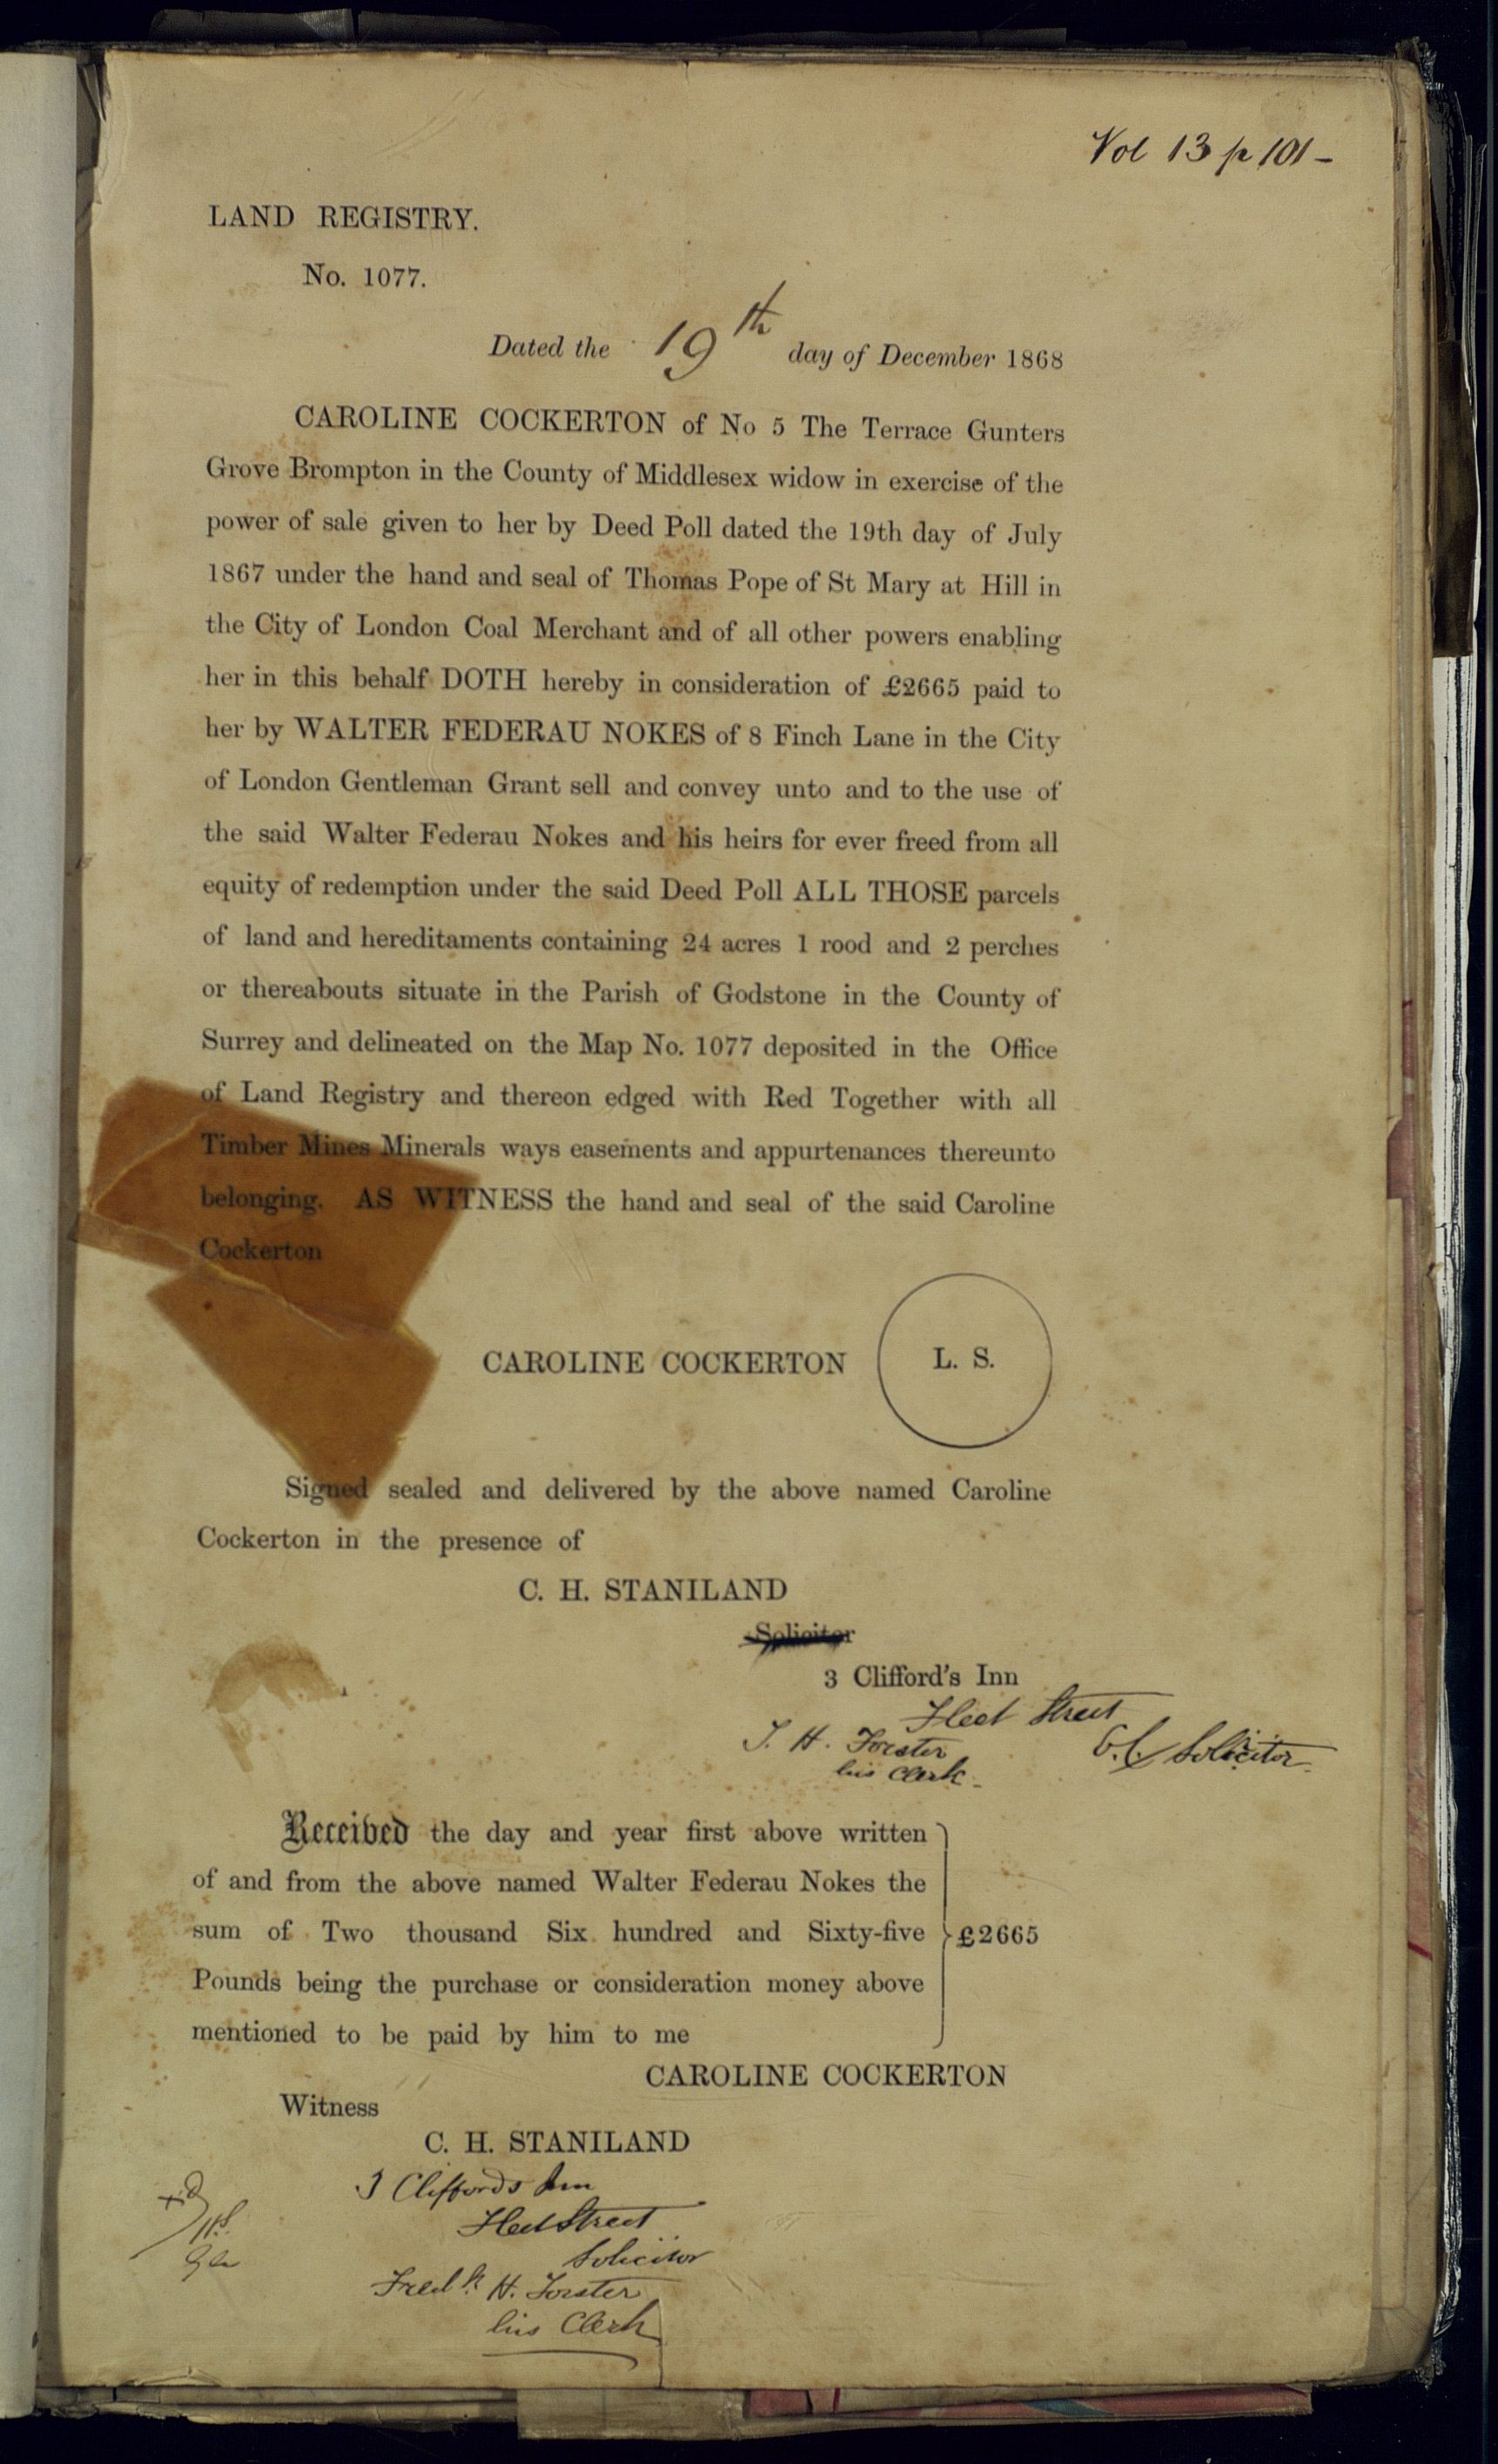 Vol 13 p 101 -
LAND REGISTRY.
No. 1077.
Dated the 19th day of December 1868
CAROLINE COCKERTON of No 5 The Terrace Gunters
Grove Brompton in the County of Middlesex widow in exercise of the
power of sale given to her by Deed Poll dated the 19th day of July
1867 under the hand and seal of Thomas Pope of St Mary at Hill in
the City of London Coal Merchant and of all other powers enabling
her in this behalf DOTH hereby in consideration of £2665 paid to
her by WALTER FEDERAU NOKES of 8 Finch Lane in the City
of London Gentleman Grant sell and convey unto and to the use of
the said Walter Federau Nokes and his heirs for ever freed from all
equity of redemption under the said Deed Poll ALL THOSE parcels
of land and hereditaments containing 24 acres 1 rood and 2 perches
or thereabouts situate in the Parish of Godstone in the County of
Surrey and delineated on the Map No. 1077 deposited in the Office
of Land Registry and thereon edged with Red Together with all
Timber Mines Minerals ways easements and appurtenances thereunto
belonging. AS WITNESS the hand and seal of the said Caroline
Cockerton
CAROLINE COCKERTON L. S.
Signed sealed and delivered by the above named Caroline
Cockerton in the presence of
C. H. STANILAND
Solicitor
3 Clifford's Inn
Fleet Street
Solicitor
H. Forster
his Clerk
Received the day and year first above written
of and from the above named Walter Federau Nokes the
sum of Two thousand Six hundred and Sixty-five £2665
Pounds being the purchase or consideration money above
mentioned to be paid by him to me
CAROLINE COCKERTON
Witness
C. H. STANILAND
3 Cliffords Inn
Fleet Street
Solicitor
Fredk H. Forster
his Clerk